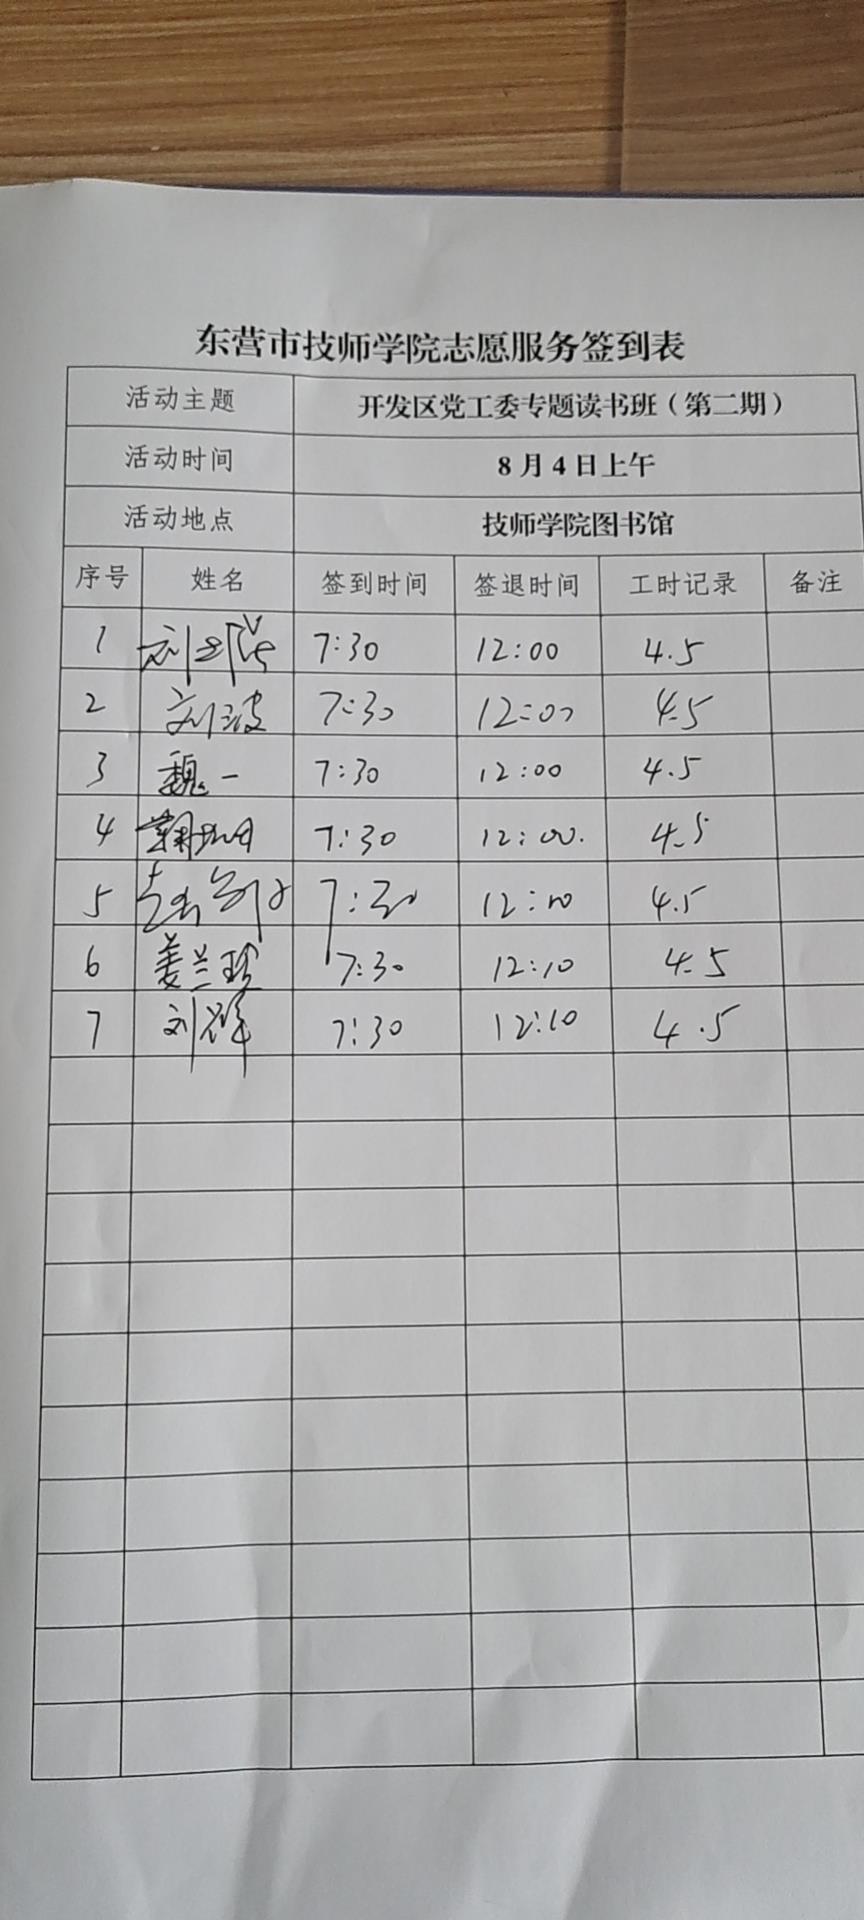 东营市技师学院志愿服务签到表
活动主题 开发区党工委专题读书班（第二期）
活动时间 8月4日上午
活动地点 技师学院图书馆
序号 姓名 签到时间 签退时间 工时记录 备注
1 7:30 12:00 4.5
2 刘波 7:30 12:00 4.5
3 魏一 7:30 12:00 4.5
4 7:30 12:00. 4.5
5 7:30 4.5
6 姜兰珍 7:30 12:10 4.5
7 刘祥 7:30 12:10 4.5